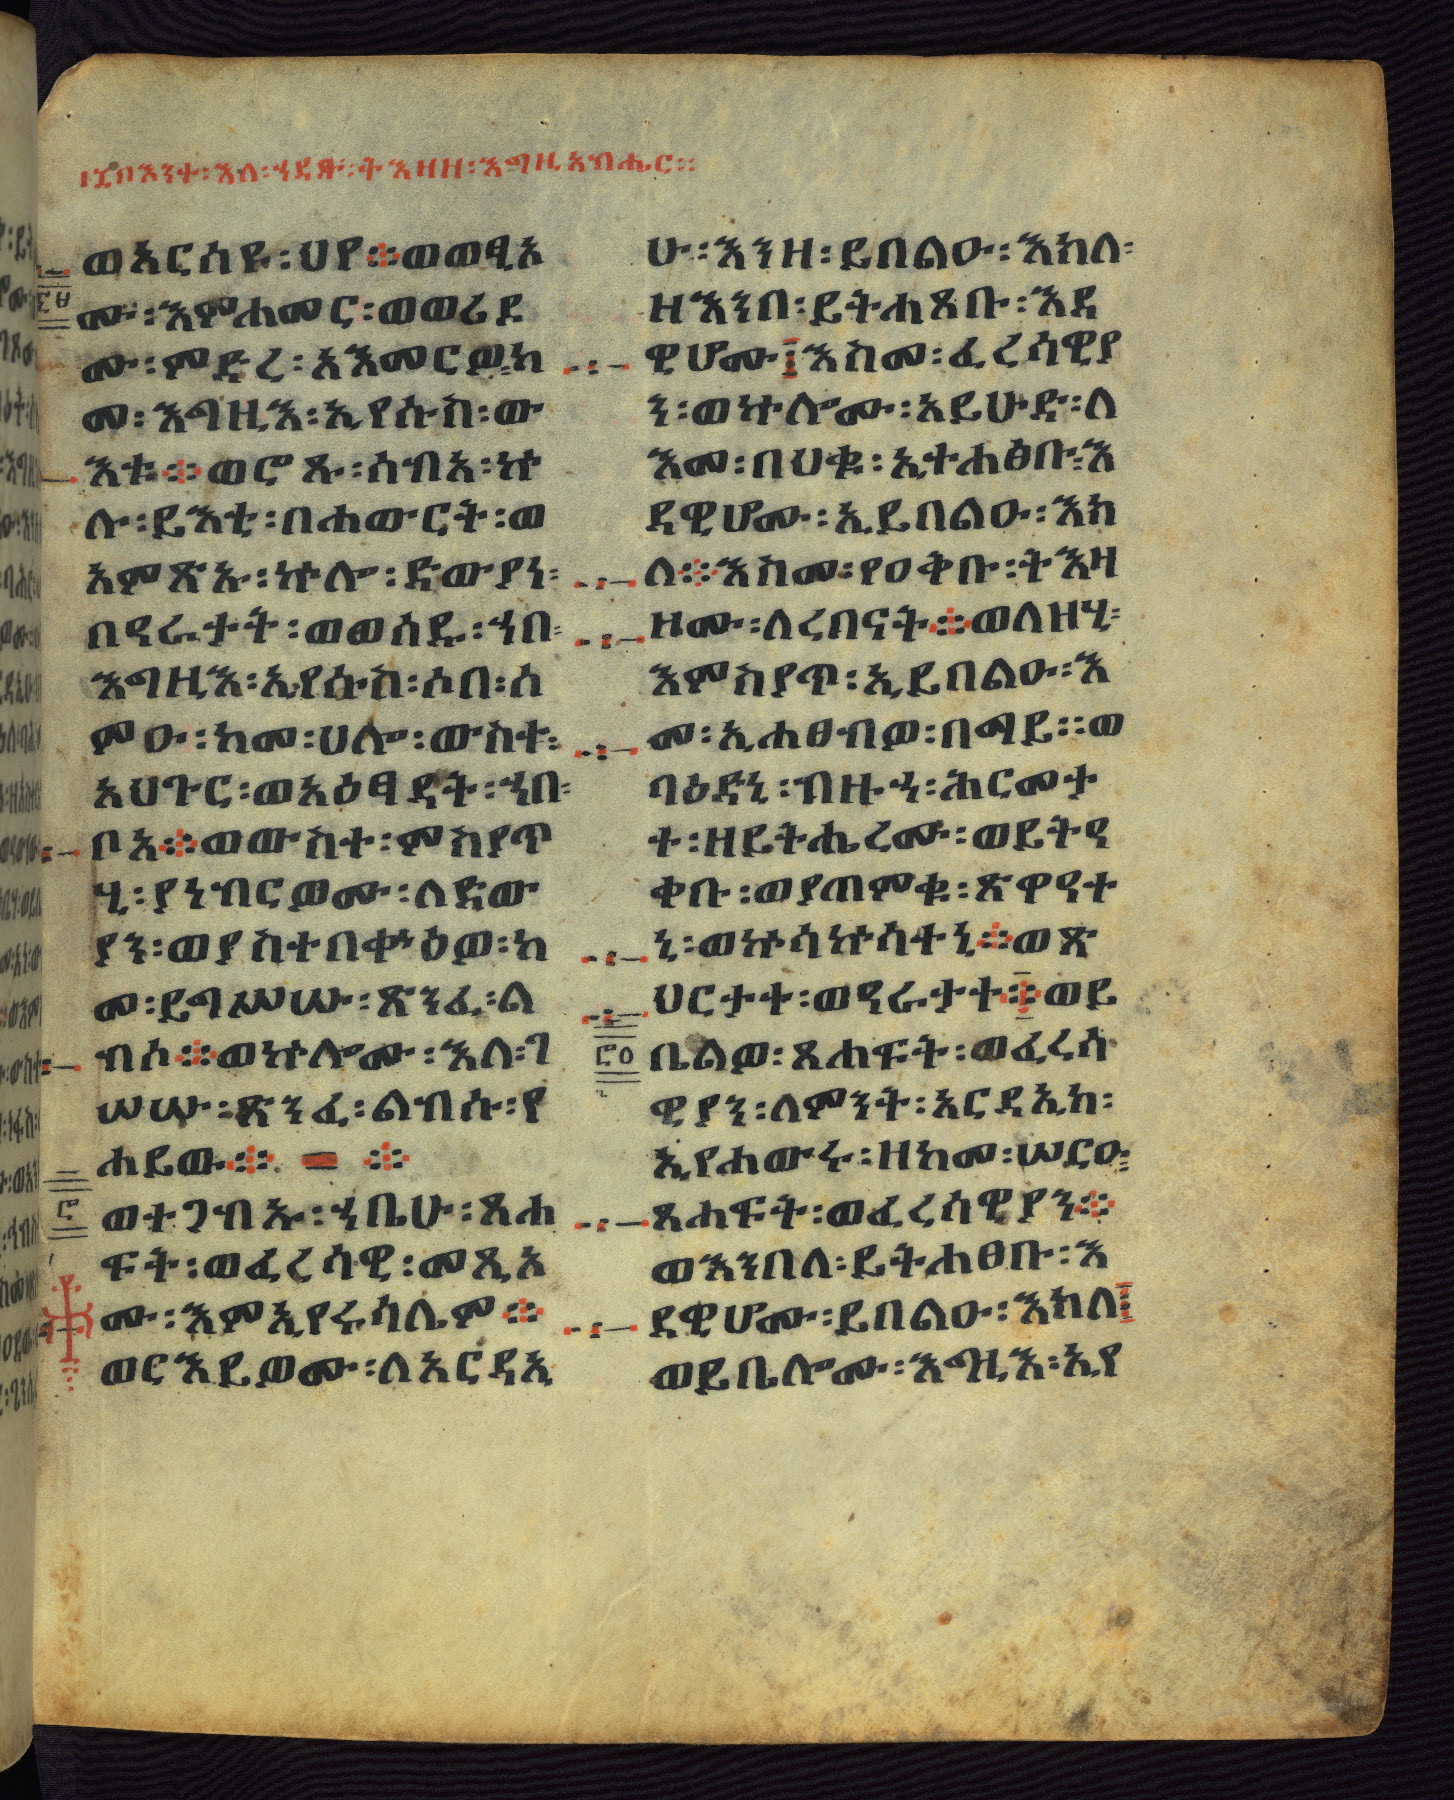 ፲፪በእንተ፡እለ፡ኀደጉ፡ትእዛዘ፡እግዚአብሔር።
ወእርሰዩ፡ህየ፨ወወፂኦ
ሙ፡እምሐመር፡ወወሪደ
ሙ፡ምድረ፡አእመርዎ፡ከ
መ፡እግዚእ፡ኢየሱስ፡ው
እቱ፨ወሮጹ፡ሰብአ፡ኵ
ሉ፡ይእቲ፡በሐውርት፡ወ
አምጽኡ፡ኵሎ፡ድውያነ፡
በዓራታት፡ወወሰዱ፡ኀበ፡
እግዚእ፡ኢየሱስ፡ሶበ፡ሰ
ምዑ፡ከመ፡ሀሎ፡ውስተ፡
አህጉር፡ወአዕፃዳት፡ኀበ፡
ቦአ፨ወውስተ፡ምስያጥ
ሂ፡ያነብርዎሙ፡ለድው
ያን፡ወያስተበቍዕዎ፡ከ
መ፡ይግሥሡ፡ጽንፈ፡ል
ብሱ፨ወኵሎሙ፡እለ፡ገ
ሠሡ፡ጽንፈ፡ልብሱ፡የ
ሐይው፨ ፨
ወተጋብኡ፡ኀቤሁ፡ጸሐ
ፍት፡ወፈረሳዊ፡መጺኦ
ሙ፡እምኢየሩሳሌም፨
ወርእይዎሙ፡ለአርዳኢ
ሁ፡እንዘ፡ይበልዑ፡እክለ፡
ዘእንበ፡ይትሐጸቡ፡እዳ
ዊሆሙ፡እስመ፡ፈረሳዊያ
ን፡ወኵሎሙ፡አይሁድ፡ለ
እመ፡በህቁ፡ኢተሐፅቡ፡እ
ዳዊሆሙ፡ኢይበልዑ፡እክ
ለ፨እስመ፡የዐቅቡ፡ትእዛ
ዞሙ፡ለረበናት፨ወለዘሂ፡
እምስያጥ፡ኢይበልዑ፡እ
መ፡ኢሐፀብዎ፡በማይ።ወ
ባዕዳነ፡ብዙኀ፡ሕርመታ
ተ፡ዘይትሔረሙ፡ወይትዓ
ቀቡ፡ወያጠምቁ፡ጽዋዓተ
ኒ፡ወኵሳኵሳተኒ፨ወጽ
ህርታተ፡ወዓራታተ፨ወይ
ቤልዎ፡ጸሐፍት፡ወፈረሳ
ዊያን፡ለምንት፡አርዳኢከ፡
ኢየሐውሩ፡ዘከመ፡ሠርዑ፡
ጸሐፍት፡ወፈረሳዊያን፨
ወእንበለ፡ይትሐፀቡ፡እ
ደዊሆሙ፡ይበልዑ፡እክለ
ወይቤሎሙ፡እግዚእ፡ኢየ